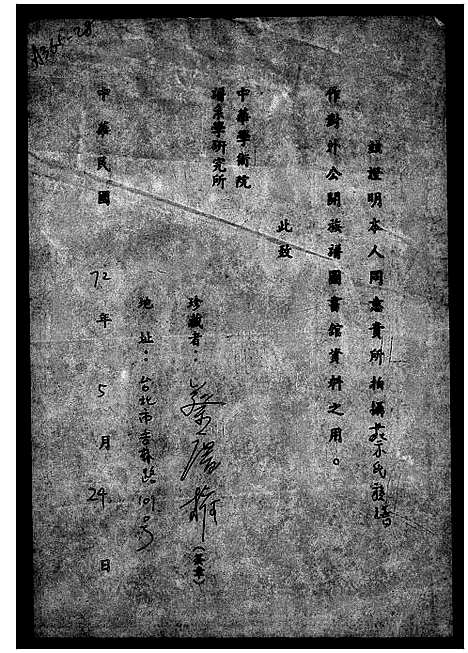 A366-28
茲證明本人同意貴所拍攝蔡氏族譜
作對外公開族譜圖書館資料之用。
此致
中華學術院
譜系學研究所
珍藏者：蔡 (簽章)
地址：台北市吉林路 號
中華民國72年5月24日